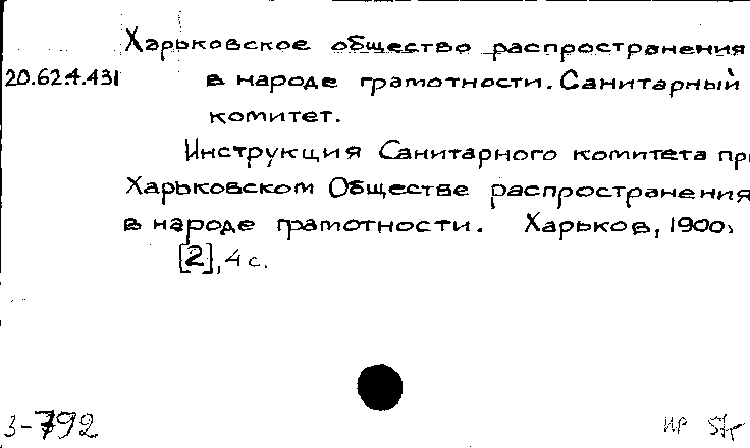 Харьковское общество распространения
20.62.4.431 в народе грамотности. Санитарный
комитет.
Инструкция Санитарного комитета пр
Харьковском Обществе распространения
в народе грамотности. Харьков, 1900.
[2], 4 с.
3-792